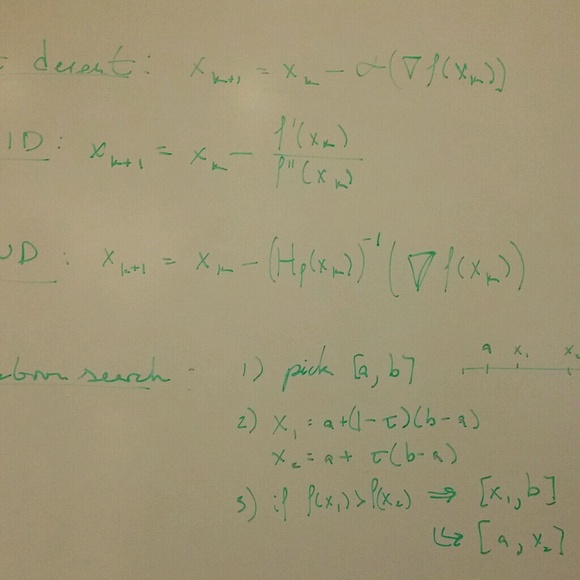 t descent: x_{k+1} = x_k - α(∇f(x_k))
1D: x_{k+1} = x_k - f'(x_k) / f''(x_k)
D: x_{k+1} = x_k - (H_f(x_k))^{-1} (∇f(x_k))
search: 1) pick [a, b]
a x_1 x_2
2) x_1 = a+(1-τ)(b-a)
x_2 = a+ τ(b-a)
3) if f(x_1)>f(x_2) ⇒ [x_1, b]
↳ [a, x_2]